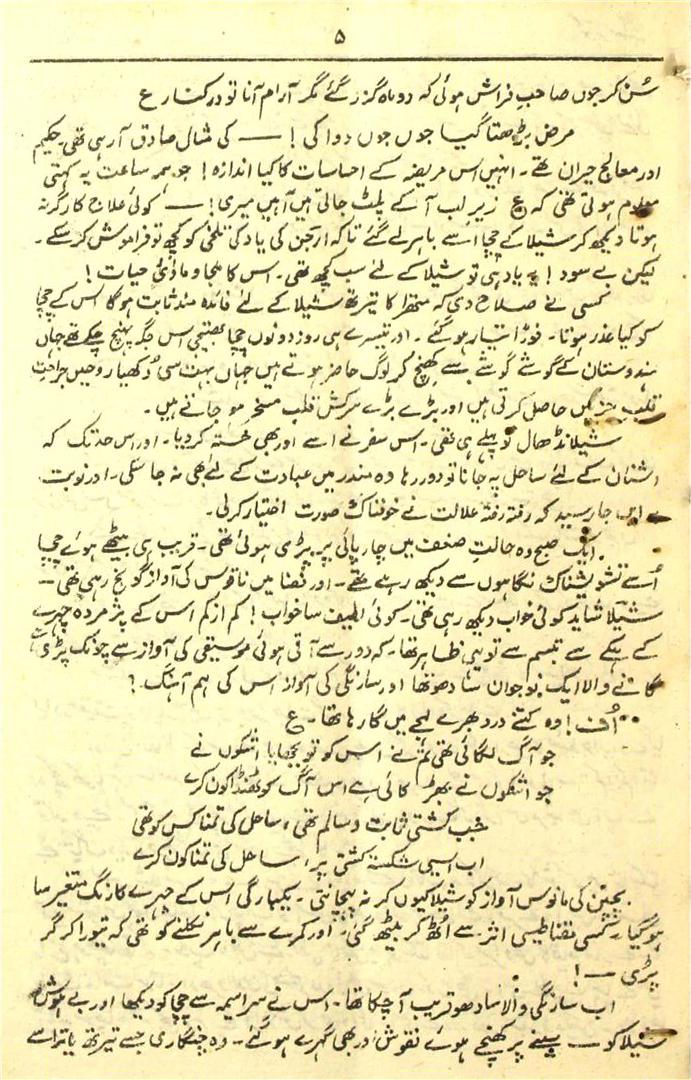 ۵
سُن کر جوں صاحبِ فراش ہوئی کہ دو ماہ گزر گئے مگر آرام آنا تو درکنار ع
مرض بڑھتا گیا جوں جوں دوا کی! — کی مثال صادق آ رہی تھی۔ حکیم
اور معالج حیران تھے۔ انہیں اس مریضہ کے احساسات کا کیا اندازہ! جو ہمہ ساعت یہ کہتی
معلوم ہوتی تھی کہ ع زیرِ لب آ کے پلٹ جاتی ہیں آہیں میری! — کوئی علاج کارگر نہ
ہوتا دیکھ کر شیلا کے چچا اسے باہر لے گئے تاکہ ارجن کی یاد کی تلخی کو کچھ تو فراموش کر سکے۔
لیکن بے سود! یہ یاد ہی تو شیلا کے لئے سب کچھ تھی۔ اس کا ملجا و ماویٰ حیات!
کسی نے صلاح دی کہ متھرا کا تیرتھ شیلا کے لئے فائدہ مند ثابت ہوگا اس کے چچا
کو کیا عذر ہوتا۔ فوراً تیار ہو گئے۔ اور تیسرے ہی روز دونوں چچا بھتیجی اس جگہ پہنچ چکے تھے جہاں
ہندوستان کے گوشے گوشے سے کھنچ کر لوگ حاضر ہوتے ہیں جہاں بہت سی دُکھیا روحیں جراحتِ
قلب حاصل کرتی ہیں اور بڑے بڑے سرکش قلب مسخر ہو جاتے ہیں۔
شیلا نڈھال تو پہلے ہی تھی۔ اس سفر نے اسے اور بھی خستہ کر دیا۔ اور اس حد تک کہ
اشنان کے لئے ساحل پہ جانا تو دور رہا وہ مندر میں عبادت کے لئے بھی نہ جا سکی۔ اور نوبت
بہ ایں جا رسید کہ رفتہ رفتہ علالت نے خوفناک صورت اختیار کر لی۔
ایک صبح وہ حالتِ ضعف میں چارپائی پر پڑی ہوئی تھی۔ قریب ہی بیٹھے ہوئے چچا
اُسے تشویشناک نگاہوں سے دیکھ رہے تھے۔ اور فضا میں ناقوس کی آواز گونج رہی تھی —
شیلا شاید کوئی خواب دیکھ رہی تھی۔ کوئی لطیف سا خواب! کم از کم اس کے پژمردہ چہرے
کے ہلکے سے تبسم سے تو یہی ظاہر تھا۔ کہ دور سے آتی ہوئی موسیقی کی آواز سے چونک پڑی
گانے والا ایک نوجوان سادھو تھا اور سارنگی کی آواز اس کی ہم آہنگ۔
اُف! وہ کتنے درد بھرے لہجے میں گا رہا تھا۔ ع
جو آگ لگائی تھی تم نے اس کو تو بجھایا اشکوں نے
جو اشکوں نے بھڑکائی ہے اس آگ کو ٹھنڈا کون کرے
جب کشتی ثابت و سالم تھی، ساحل کی تمنا کس کو تھی
اب ایسی شکستہ کشتی پر، ساحل کی تمنا کون کرے
بچپن کی مانوس آواز کو شیلا کیوں کر نہ پہچانتی۔ یکبارگی اس کے چہرے کا رنگ متغیر سا
ہو گیا کسی مقناطیسی اثر سے اُٹھ کر بیٹھ گئی، اور کمرے سے باہر نکلنے کو تھی کہ تیورا کر گر
پڑی — !
اب سارنگی والا سادھو قریب آ چکا تھا۔ اس نے سراسیمہ سے چچا کو دیکھا اور بے ہوش
شیلا کو — سینے پر کھنچے ہوئے نقوش اور بھی گہرے ہو گئے۔ وہ چنگاری جسے تیرتھ یاترا سے